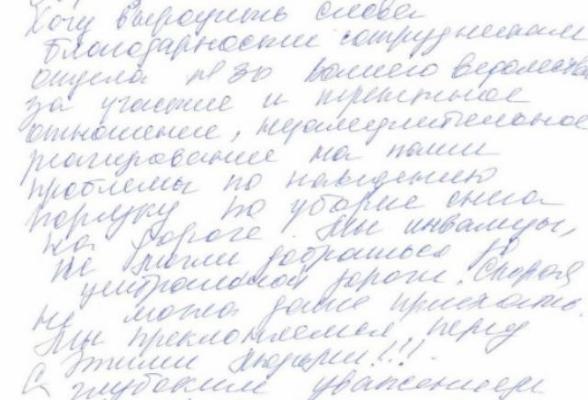 Хочу выразить слова
благодарности сотрудникам
отдела №30 вашего ведомства
за участие и трепетное
отношение, незамедлительное
реагирование на наши
проблемы по наведению
порядку по уборке снега
на дороге. Мы инвалиды,
не могли добраться до
центральной дороги. Скорая
не могла даже приехать.
Мы преклоняемся перед
этими людьми!!!.
С глубоким уважением